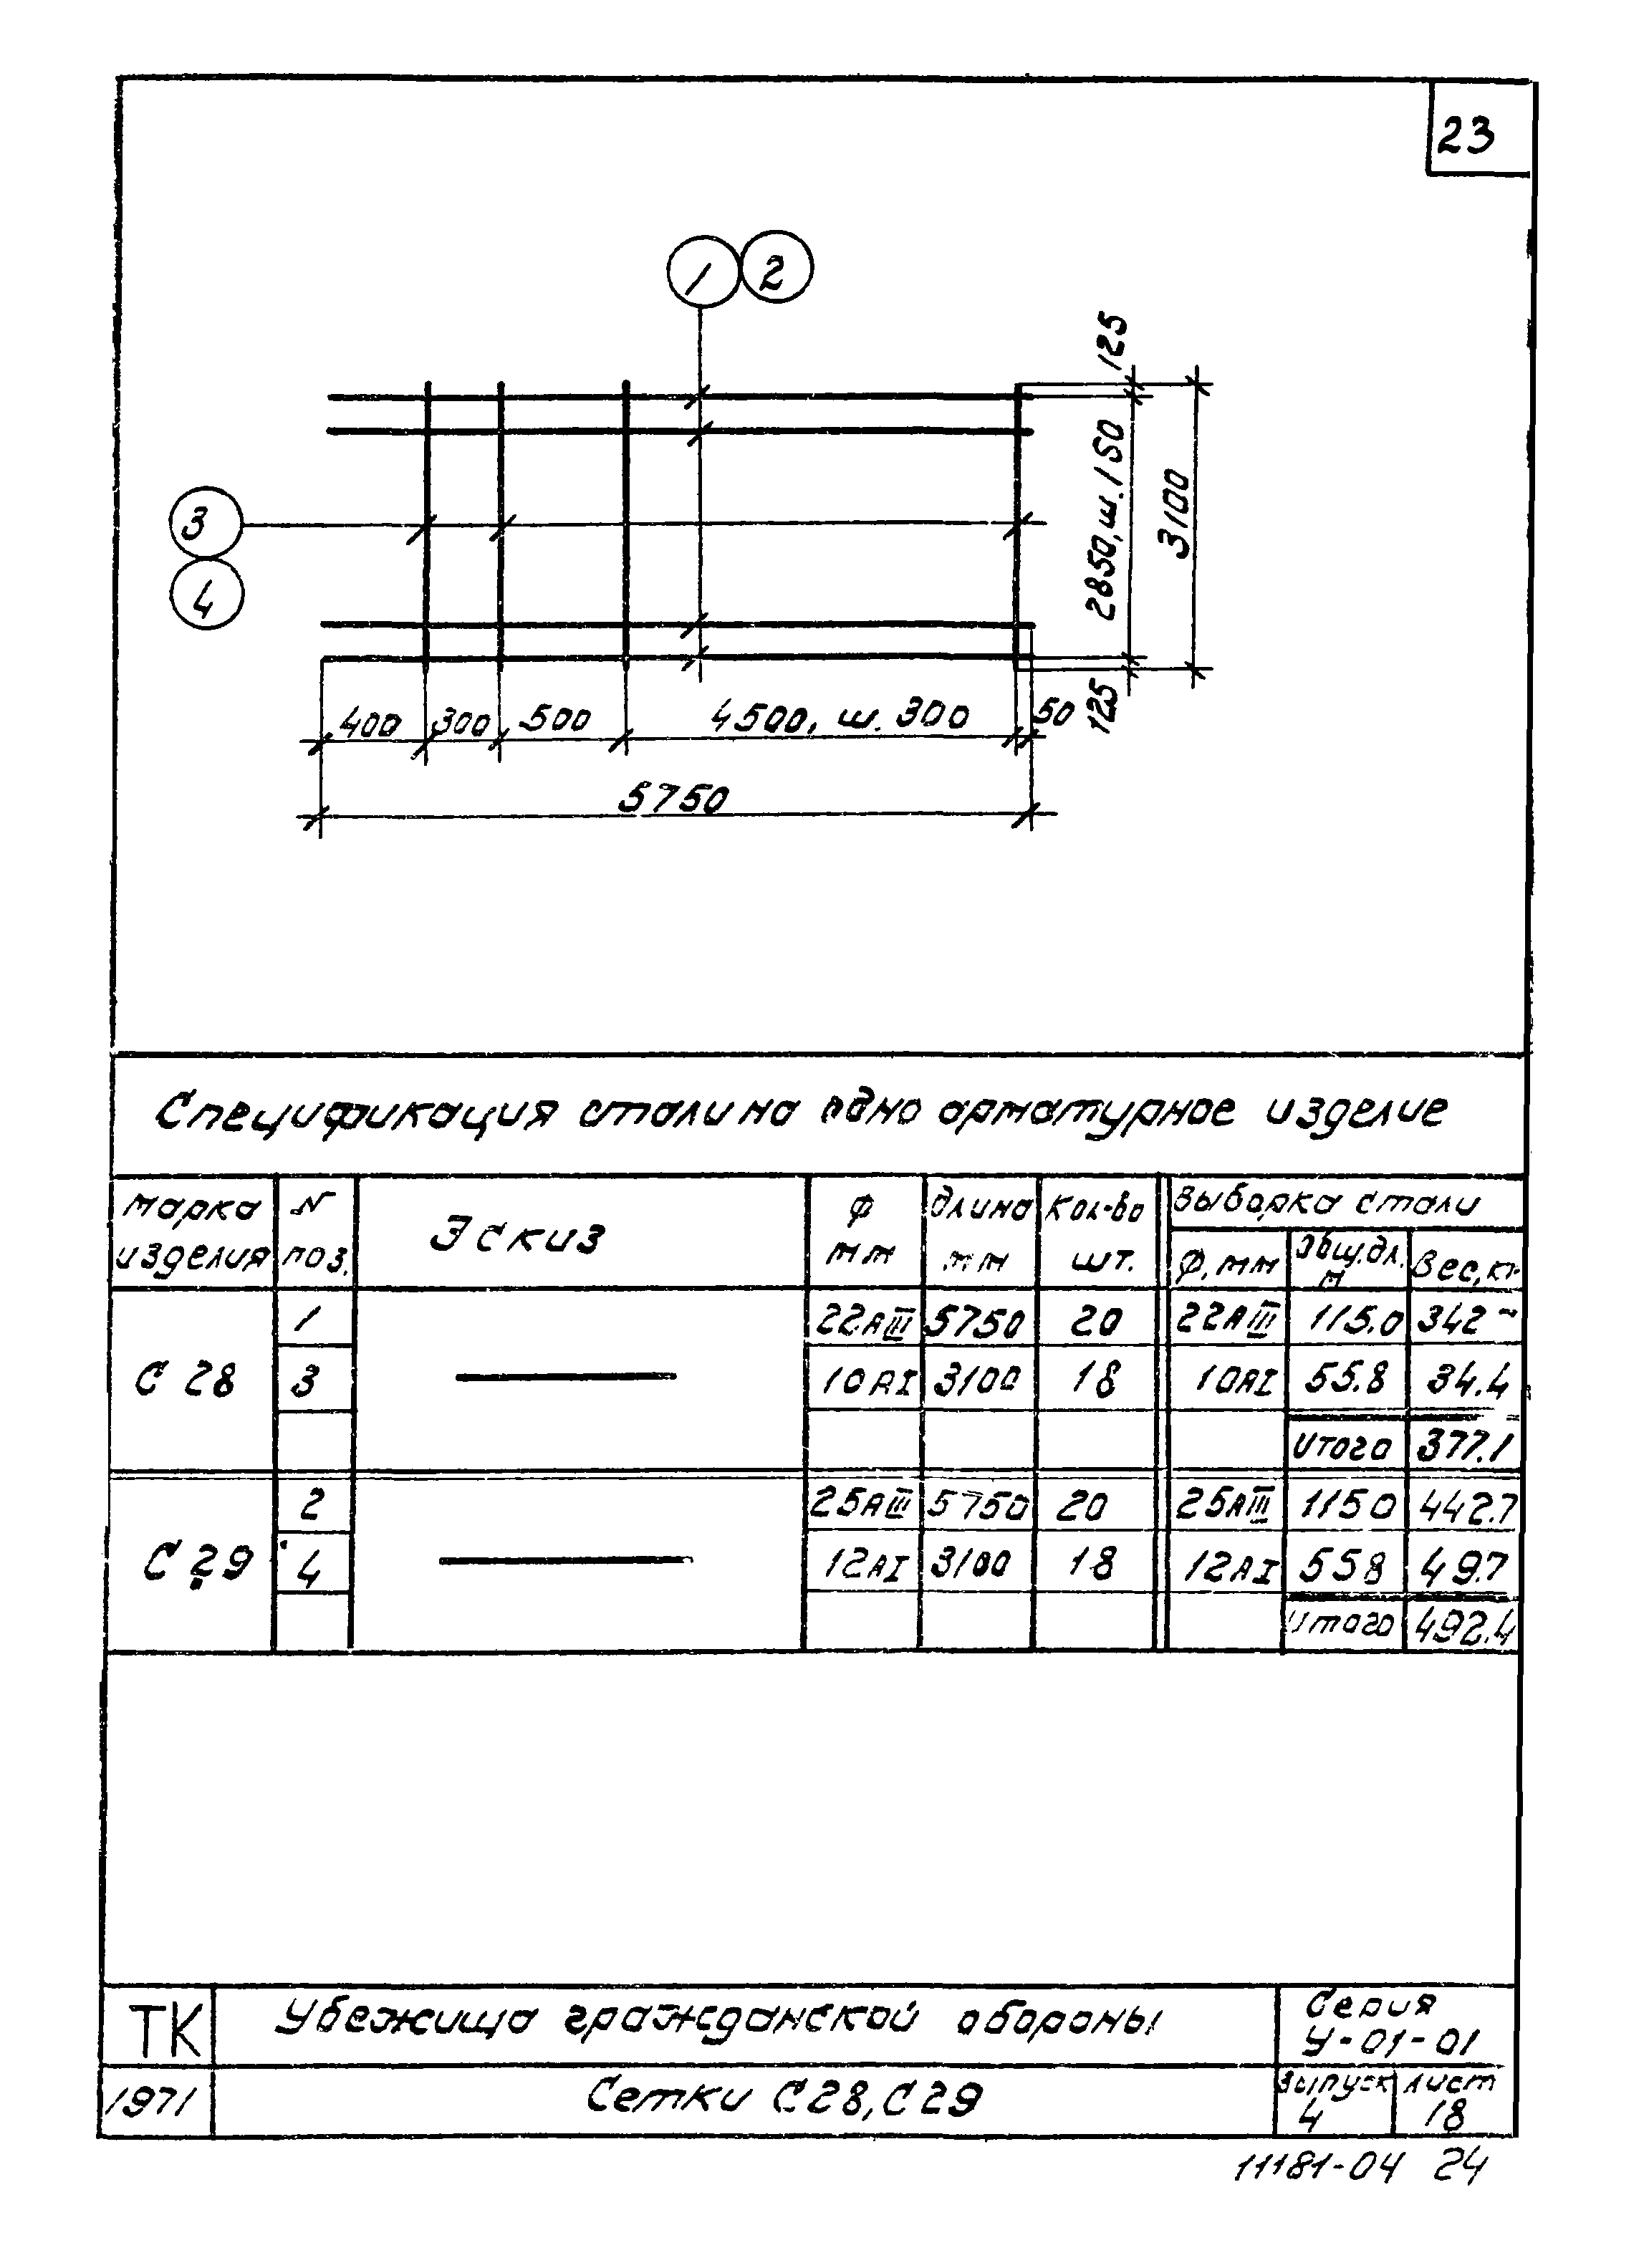 23
1 2
125
2850, ш. 150
3100
3
4
125
400 300 500 4500, ш. 300 50
5750
Спецификация стали на одно арматурное изделие
марка изделия
N поз.
Эскиз
Ф мм
длина мм
Кол-во шт.
Выборка стали
Ф, мм
Общ. дл. м
Вес, кг
С 28
1 22АIII 5750 20 22АIII 115.0 342
3 10АI 3100 18 10АI 55.8 34.4
Итого 377.1
С 29
2 25АIII 5750 20 25АIII 1150 442.7
4 12АI 3100 18 12АI 558 49.7
Итого 492.4
ТК
Убежища гражданской обороны
Серия
У-01-01
1971
Сетки С28, С29
Выпуск
4
лист
18
11181-04 24